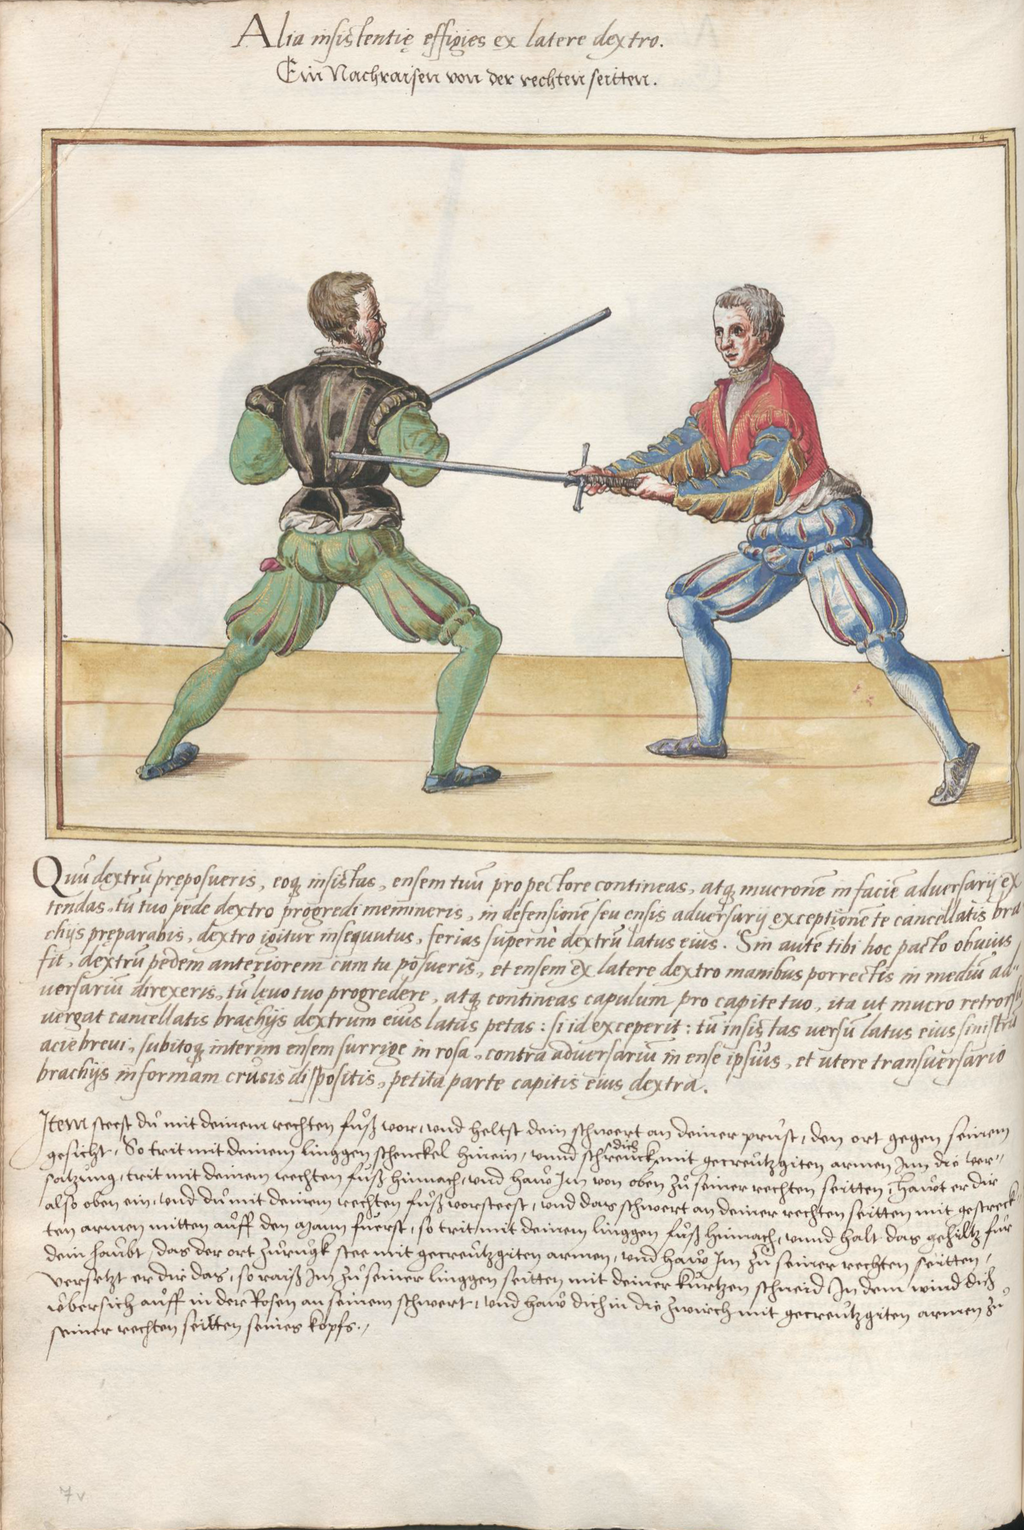 Alia insistentię effigies ex latere dextro.
Ein Nachraisen von der rechten seitten.
14
Quū dextrū pręposueris, eoq̨ insistas, ensem tuū pro pectore contineas, atq̨ mucronē in faciē adversarij ex
tendas, tū tuo pede dextro progredi memineris, in defensionē seu ensis adversarij exceptionē te cancellatis bra
chijs pręparabis, dextro igitur insequutus, ferias supernè dextrū latus eius. Sin autē tibi hoc pacto obuius
fit, dextrū pedem anteriorem cum tu posueris, et ensem ex latere dextro manibus porrectis in mediū ad-
versariū direxeris, tū lęuo tuo progredere, atq̨ contineas capulum pro capite tuo, ita ut mucro retrorsū
vergat cancellatis brachijs dextrum eius latus petas: si id exceperit: tū insistas versū latus eius sinistrū
acie breui, subitoq̨ interim ensem surrige in rosa, contra adversariū in ense ipsius, et utere transversario
brachijs in formam crucis dispositis, petita parte capitis eius dextra.
Item steest dū mit deinem rechten fůß vor, vnd heltst dein schwert an deiner prust, den ort gegen seinem
gesicht, So trit mit deinem linggen schenckel hinein, vnnd schrenck dich mit gecreützgiten armen Inn die ver-
satzung, trit mit deinem rechten fůß hinnach, vnd haw In von oben zů seiner rechten seitten, hawt er dir
also oben ein, vnd dū mit deinem rechten fůß vorsteest, vnd das schwert an deiner rechten seitten mit gestreck
ten armen mitten auff den Mann fuerst, so trit mit deinem linggen fůß hinnach, vnnd halt das gehiltz für
dein haubt, das der ort zurugk stee mit gecreützgiten armen, vnd haw Im zů seiner rechten seitten,
versetzt er dir das, so raiß Im zů seiner linggen seitten mit deiner kurtzen schneid In dem wind dich
übersich auff in der Rosen an seinem schwert, vnd haw dich in die zwirch mit gecreützgiten armen zů
seiner rechten seitten seines kopfs.
7v